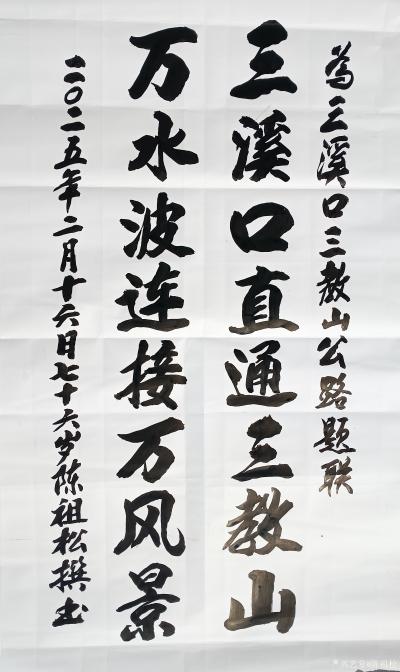 為三溪口三教山公路题联
三溪口直通三教山
万水波连接万风景
二〇二五年二月十六日七十六岁陈祖松撰书